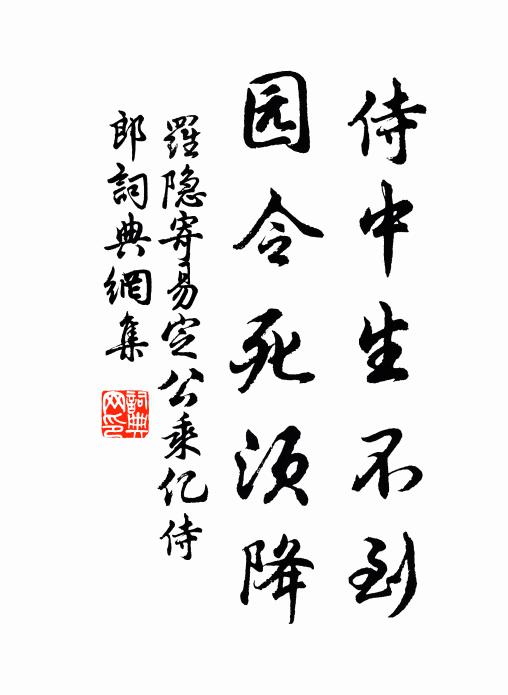 侍中生不到
园令死须降
羅隐寄易定公乘亿侍
郎詞典網集
詞典网印